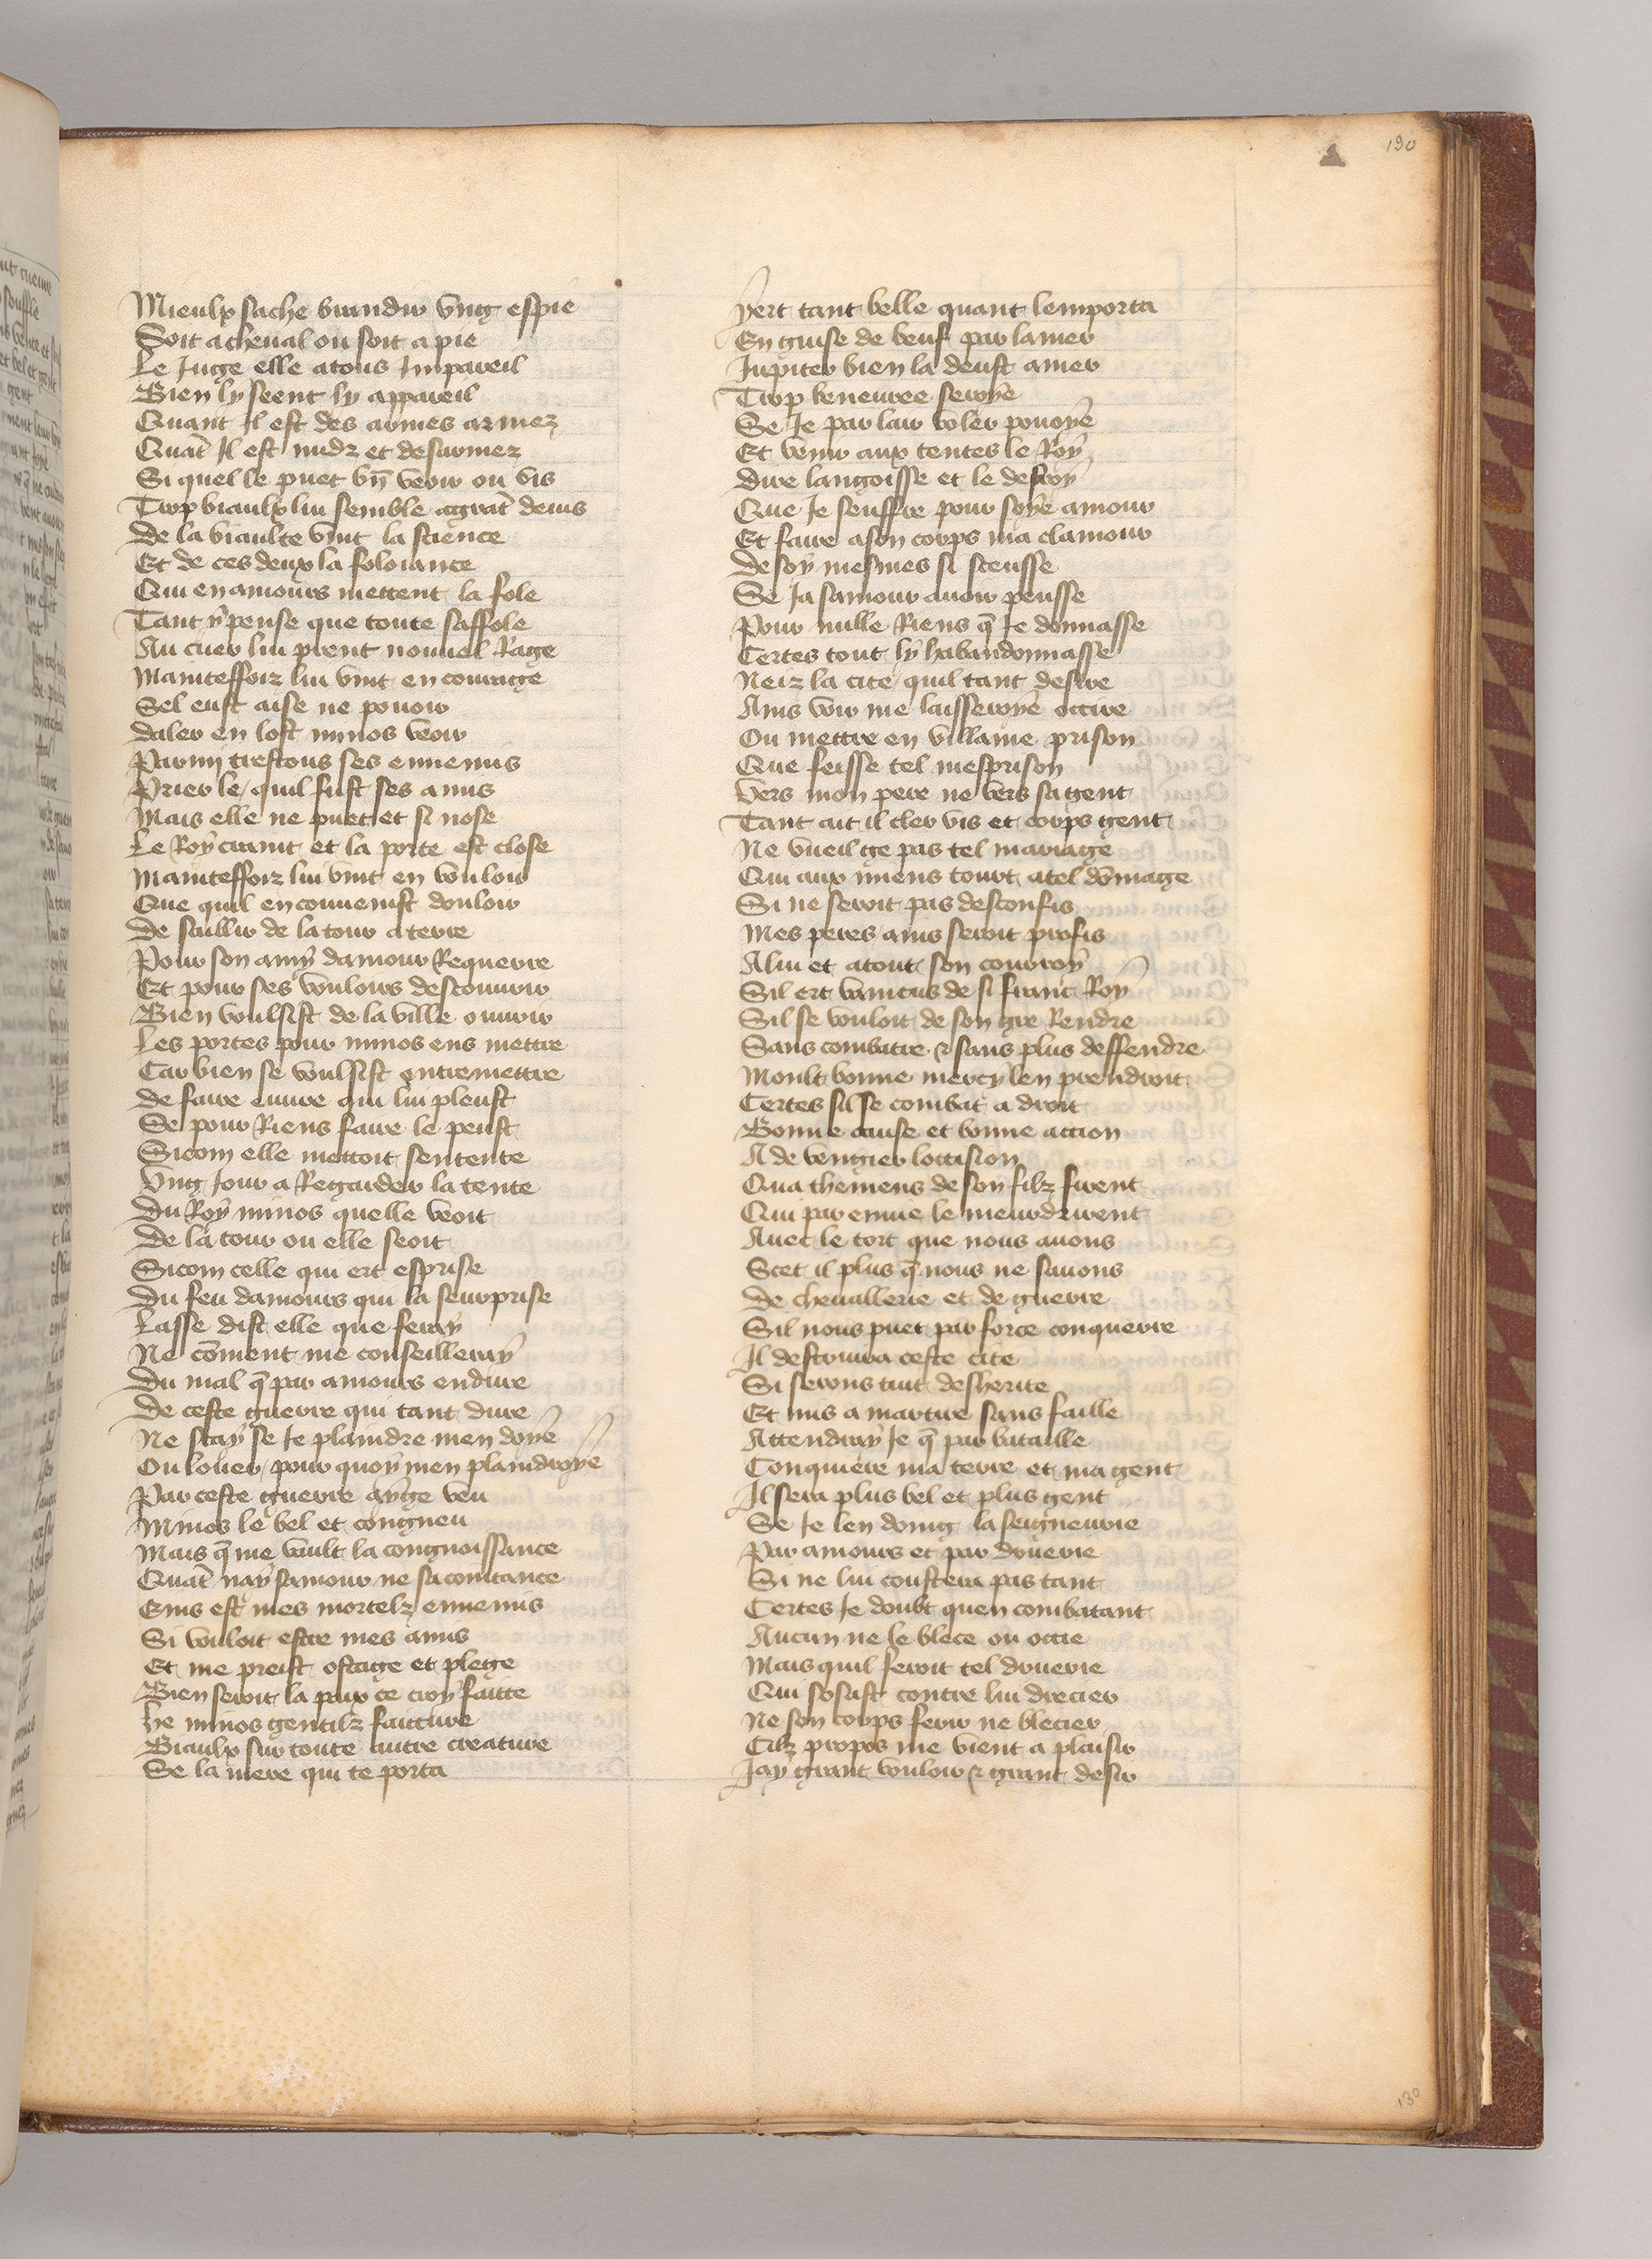 190
Mieulx sache brandir vng espie
Soit acheual ou soit a pie
Le Juge elle atous Impareil
Bien ly seent ly appareil
Quant Il est des armes armez
Quat̃ Il est nudz et desarmez
Si quelle puet vñ veoir ou vis
Trop biaulx lui semble agrat̃ deuis
De la biaulte vint la science
Et de ces deux la foloiance
Qui en amours mettent la fole
Tant y pense que toute saffole
Au cuer lui prent nouuel Rage
Mainteffoiz lui vint en courage
Sel eust aise ne pouoir
daler en lost minos veoir
Parmy trestous ses ennemis
Prier le quil fust ses amis
Mais elle ne puet et si nose
Le Roy craint et la porte est close
Mainteffoiz lui vint en vouloir
Que quil en conuenist douloir
De saillir de la tour a terre
Pour son amy damour Requerre
Et pour ses vouloirs descouurir
Bien voulsist de la ville ouurir
Les portes pour minos ens mettre
Car bien se voulsist entremettre
de faire euure qui lui pleust
Se pour Riens faire le peust
Sicom elle mettoit sentente
Vng Jour a Regarder la tente
Du Roy minos quelle veoit
De la tour ou elle seoit
Sicom celle qui ert esprise
Du feu damours qui la seurprise
Lasse dist elle que feray
Ne cõment me conseilleray
Du mal q̃ par amours endure
De ceste guerre qui tant dure
Ne scay se Je plaindre men doye
Ou louer pour quoy men plaindroye
Par ceste guerre ayge veu
Minos le bel et congneu
Mais q̃ me vault la congnoissance
Quat̃ nay samour ne sacointance
Eins est mes mortelz ennemis
Si vouloit estre mes amis
Et me preist ostage et plege
Bien seroit la paix ce croy faitte
He minos gentilz faitture
Biaulx sur toute autre creature
Se la mere qui te porta
Yert tant belle quant lemporta
En guise de beuf par la mer
Jupiter bien la deust amer
Trop beneuree seroye
Se Je par lair voler pouoye
Et venir aux tentes le Roy
Dire langoisse et le desroy
Que Je seuffre pour soye amour
Et faire a son corps ma clamour
De soy mesmes si sceusse
Se Ja samour auoir peusse
Pour nulle Riens q̃ Je donnasse
Certes tout ly habandonnasse
Neiz la cite quil tant desire
Ains voir me laisseroye occire
Ou mettre en villaine prison
Que feisse tel mesprison
Vers mon pere ne vers sa gent
Tant ait il cler vis et corps gent
Ne vueil ge pas tel mariage
Qui aux miens tourt atel dõmage
Si ne seroit pas desconfis
Mes peres ains seroit profis
A lui et atout son courroy
Sil ert vaincus de si franc Roy
Sil se vouloit de son gre Rendre
Sans combatre & sans plus deffendre
Moult bonne mercy len prendroit
Certes sil se combat a droit
Bonne cause et bonne accion
A de vengier loccision
Qua theniens de son filz firent
Qui par enuie le meurdrirent
Auec le tort que nous auons
Scet il plus q̃ nous ne sauons
De cheuallerie et de guerre
Sil nous puet par force conquerre
Il destruira ceste cite
Si serons tuit desherite
Et mis a martire sans faille
Attendray Je q̃ par bataille
Conquiere ma terre et ma gent
Il sera plus bel et plus gent
Se Je len doing la seigneurie
Par amours et par druerie
Si ne lui coustera pas tant
Certes Je doubt quen combatant
Aucun ne le blece ou occie
Mais quil feroit tel druerie
Qui sosast contre lui drecier
Ne son corps ferir ne blecier
Cilz propos me vient a plaisir
Jay grant vouloir & grant desir
130